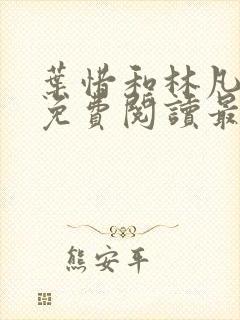 葉惜和林凡
免費閱讀最
熊安平